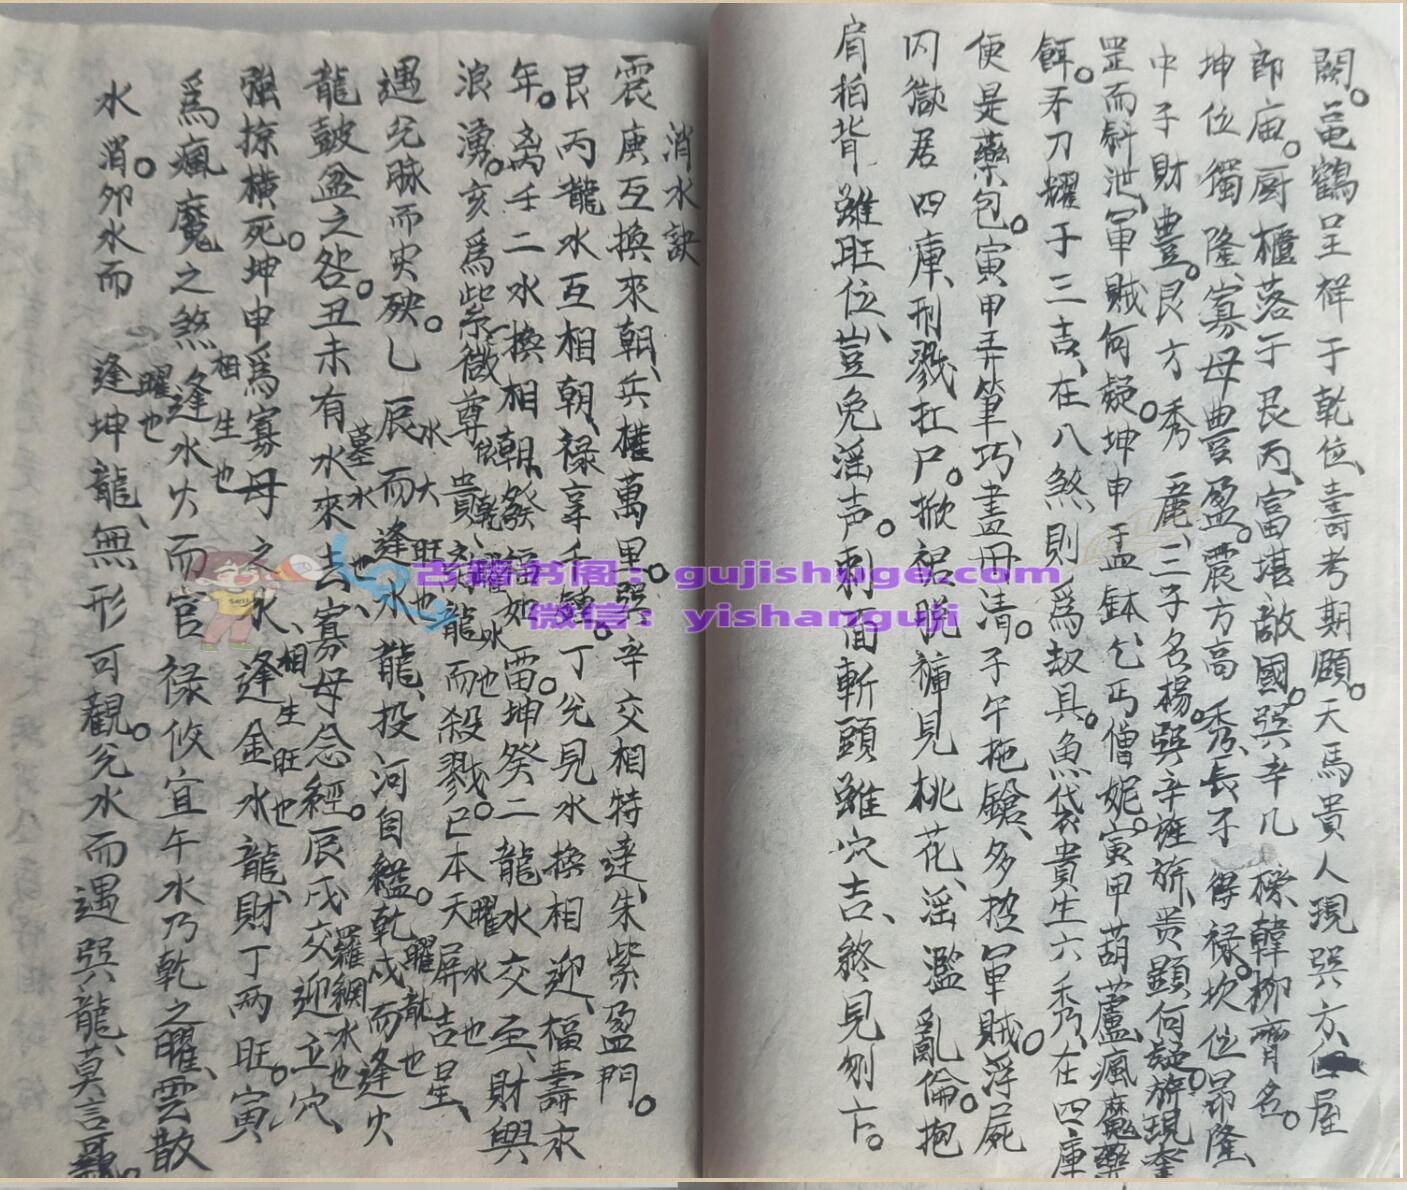 闕。黿鶴呈祥于乾位、壽考期頤。天馬貴人現巽方、屋
郎庙。厨櫃落于艮丙、富堪敵國。巽辛几 榜韓柳齊名。
坤位獨隆、寡母豊盈。震方高秀、長子得祿。坎位昴隆、
中子財豊。艮方秀麗、三子名楊。巽辛旌旂、贵顯何疑。旂現奎
罡而斜泄、軍賊何疑。坤申盂鉢、乞丐僧妮。寅甲葫蘆、瘋魔藥
餌。矛刀耀于三吉、在八煞、則為刼具。魚袋貴生六秀、在四庫
便是藥包。寅甲弄筆、巧盡毋清。子午拖鎗、多招軍賊。浮屍
囚嶽居四庫、刑戮扛尸。掀裙脱褲見桃花、淫濫亂倫。抱
肩拍背雖旺位、豈免淫声。刺面斬頭雖穴吉、終見刎亡。
消水訣
震庚互換來朝、兵權萬里。巽辛交相特達、朱紫盈門。
艮丙龍水互相朝、祿享千鍾。丁兌見水換相迎、福壽永
年。离壬二水換相朝、發福如雷。坤癸二龍水交至、財興
浪湧。亥爲紫微尊貴、龍而殺戮。巳本天屏吉星、
遇兌脉而灾殃。乚辰水大而旺也逢水龍、投河自縊。乾戌而逢火
龍皷盆之咎。丑未有水來去、寡母念經。辰戌交迎立穴、
強掠橫死。坤申爲寡母之水、逢金水龍、財丁兩旺。寅
爲瘋魔之煞、逢水火而官祿攸宜。午水乃乾之曜、雲散
水消。卯水而逢坤龍、無形可觀。兌水而遇巽龍、莫言
墓水也
曜水也
曜龍也
羅網水也
相生旺也
相生也
曜也
古籍书阁：gujishuge.com
微信：yishanguji